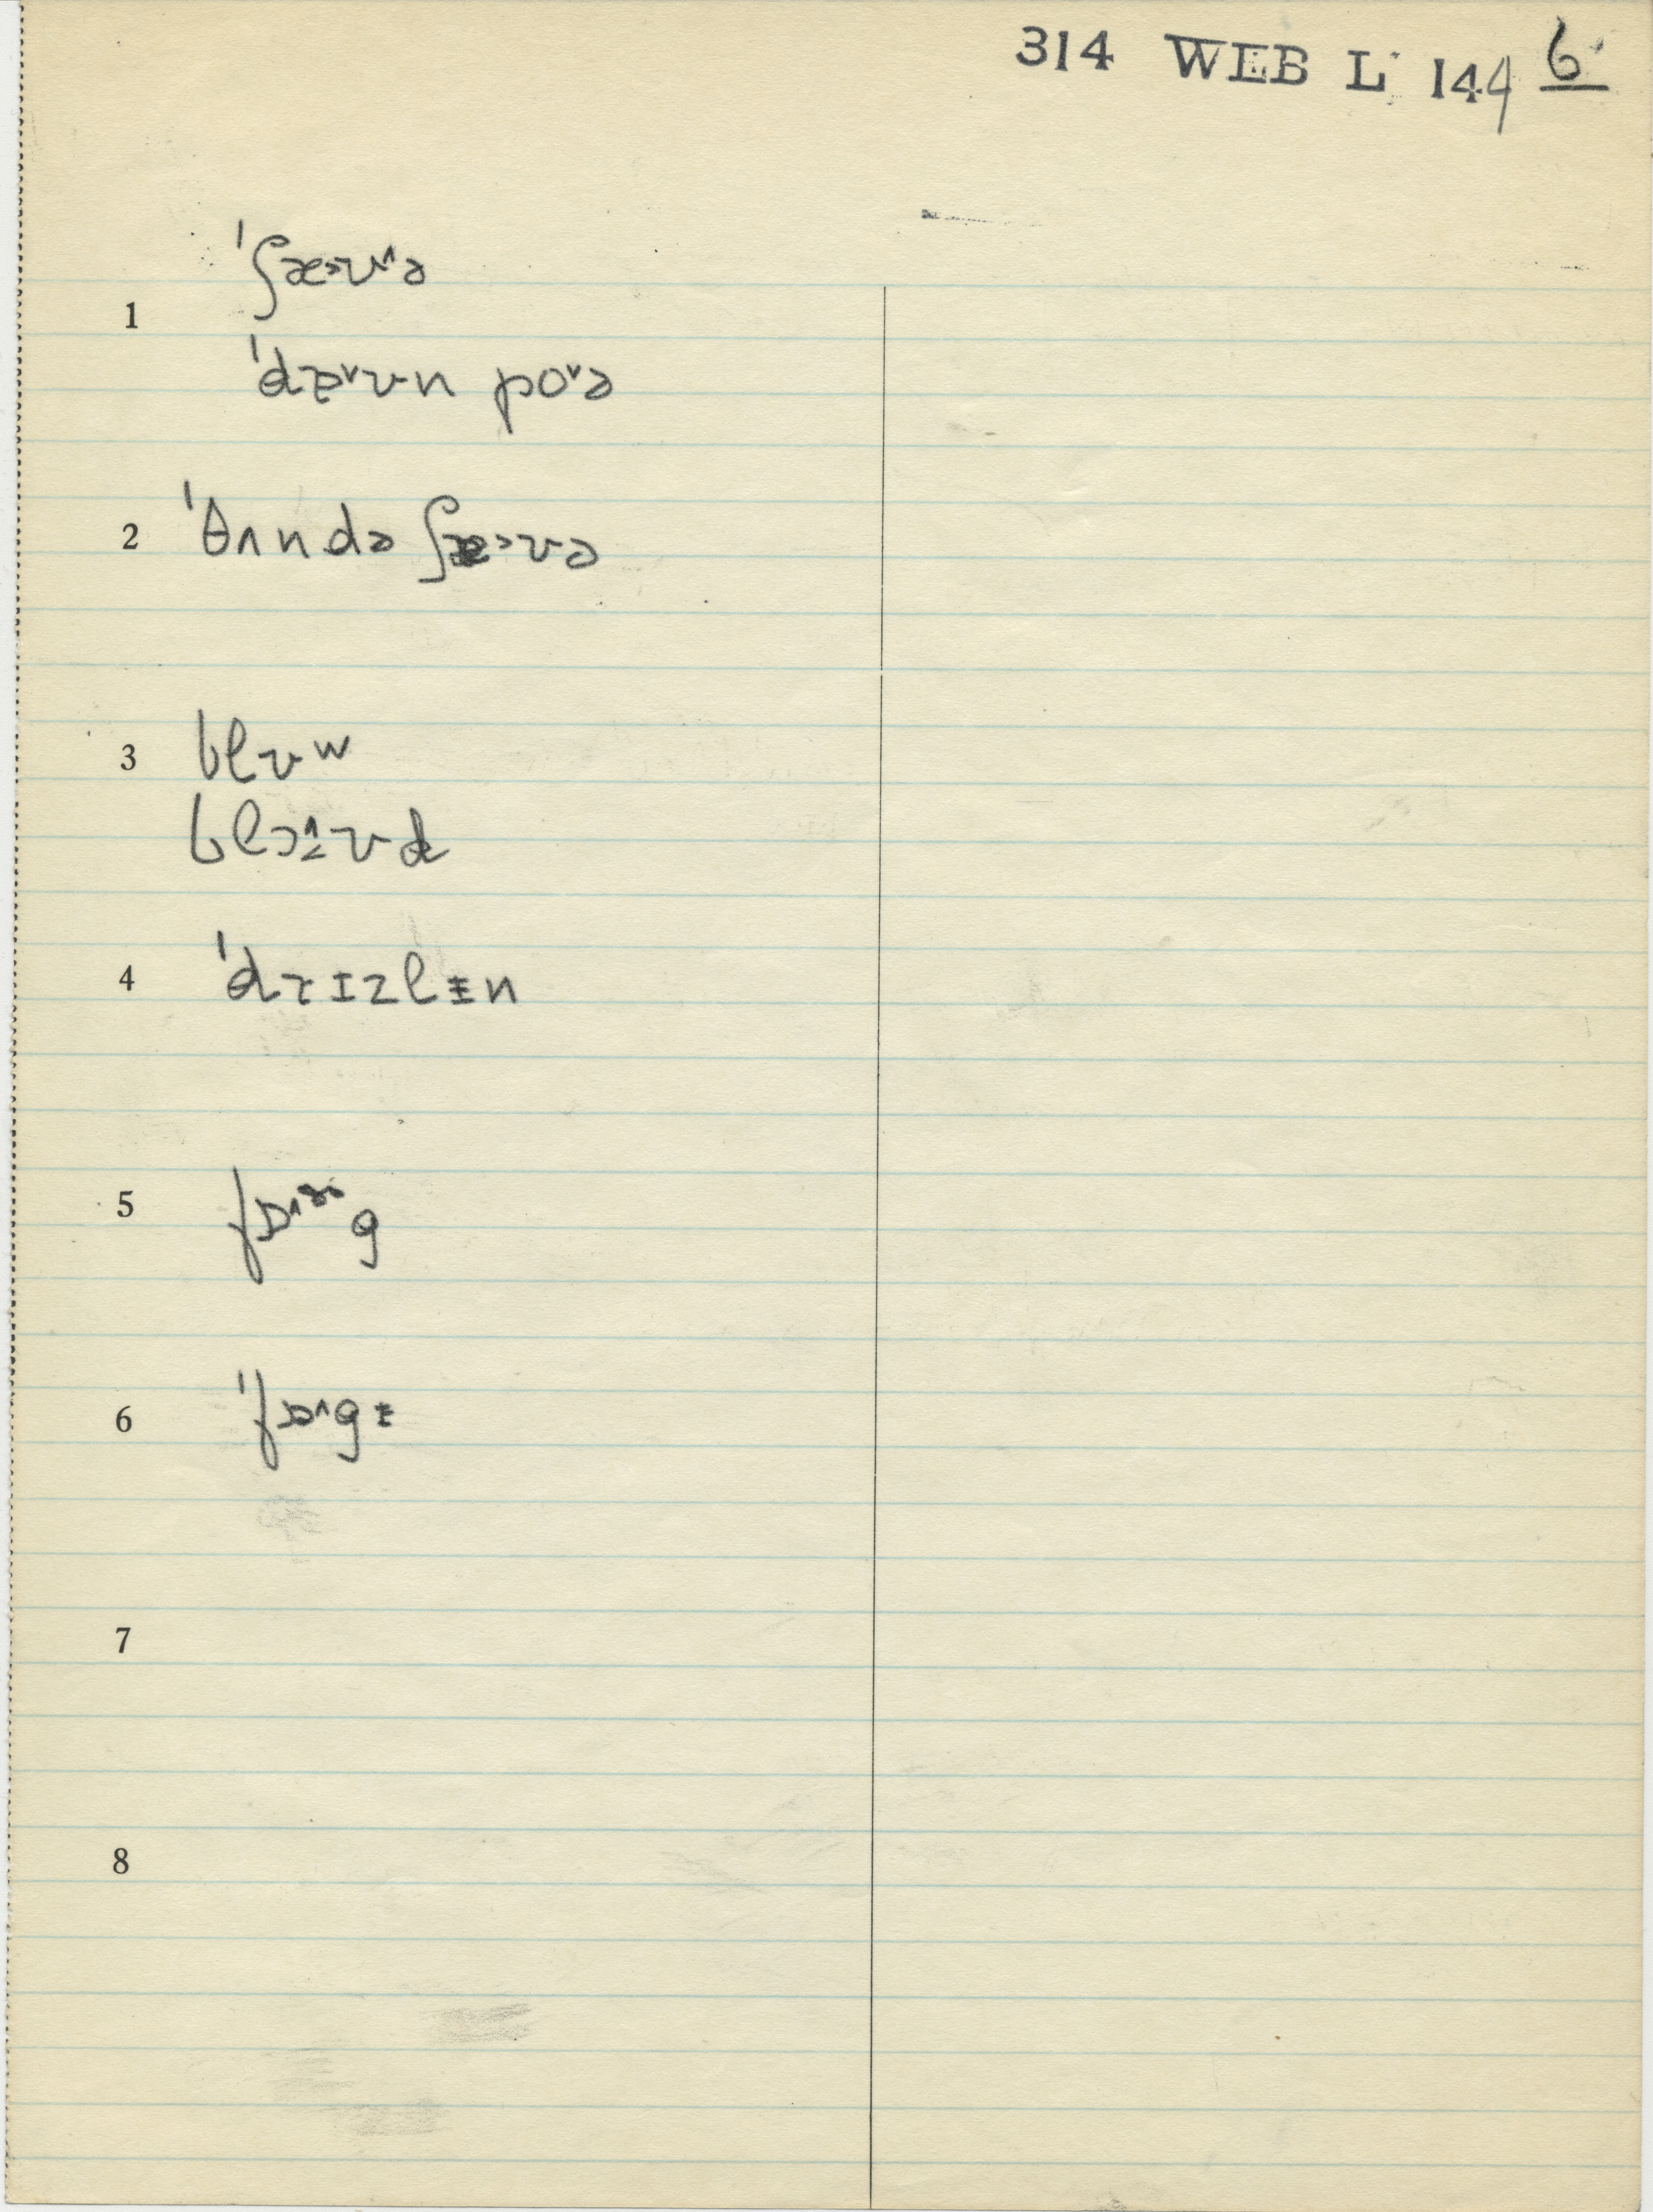 314 WEB L 144 6
1 ˈʃæ˃ʊ˄ə
ˈdæ˅ʊn po˅ə
2 ˈθʌndə ʃæ˃ʊə
3 blʊw
blɔ˄˂ʊd
4 ˈdrɪzlɨn
5 fɒ˄ɔg
6 ˈfɒ˄gɨ
7
8